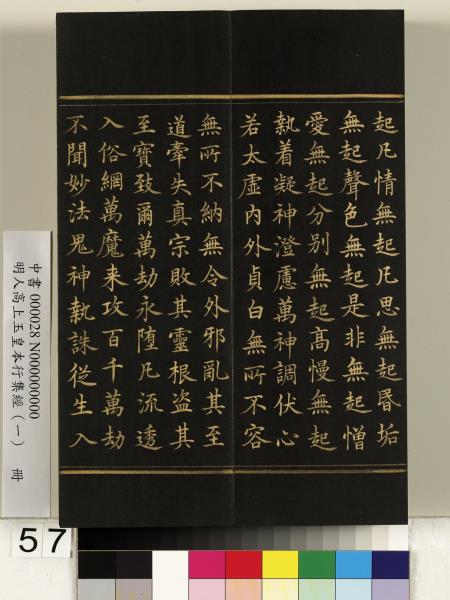 起凡情無起凡思無起昏垢
無起聲色無起是非無起憎
愛無起分别無起高慢無起
執着凝神澄慮萬神調伏心
若太虛內外貞白無所不容
無所不納無令外邪亂其至
道牽失真宗敗其靈根盜其
至寶致爾萬劫永墮凡流透
入俗網萬魔来攻百千萬劫
不聞妙法鬼神執誅從生入
中書 000028 N000000000
明人高上玉皇本行集經（一） 冊
57